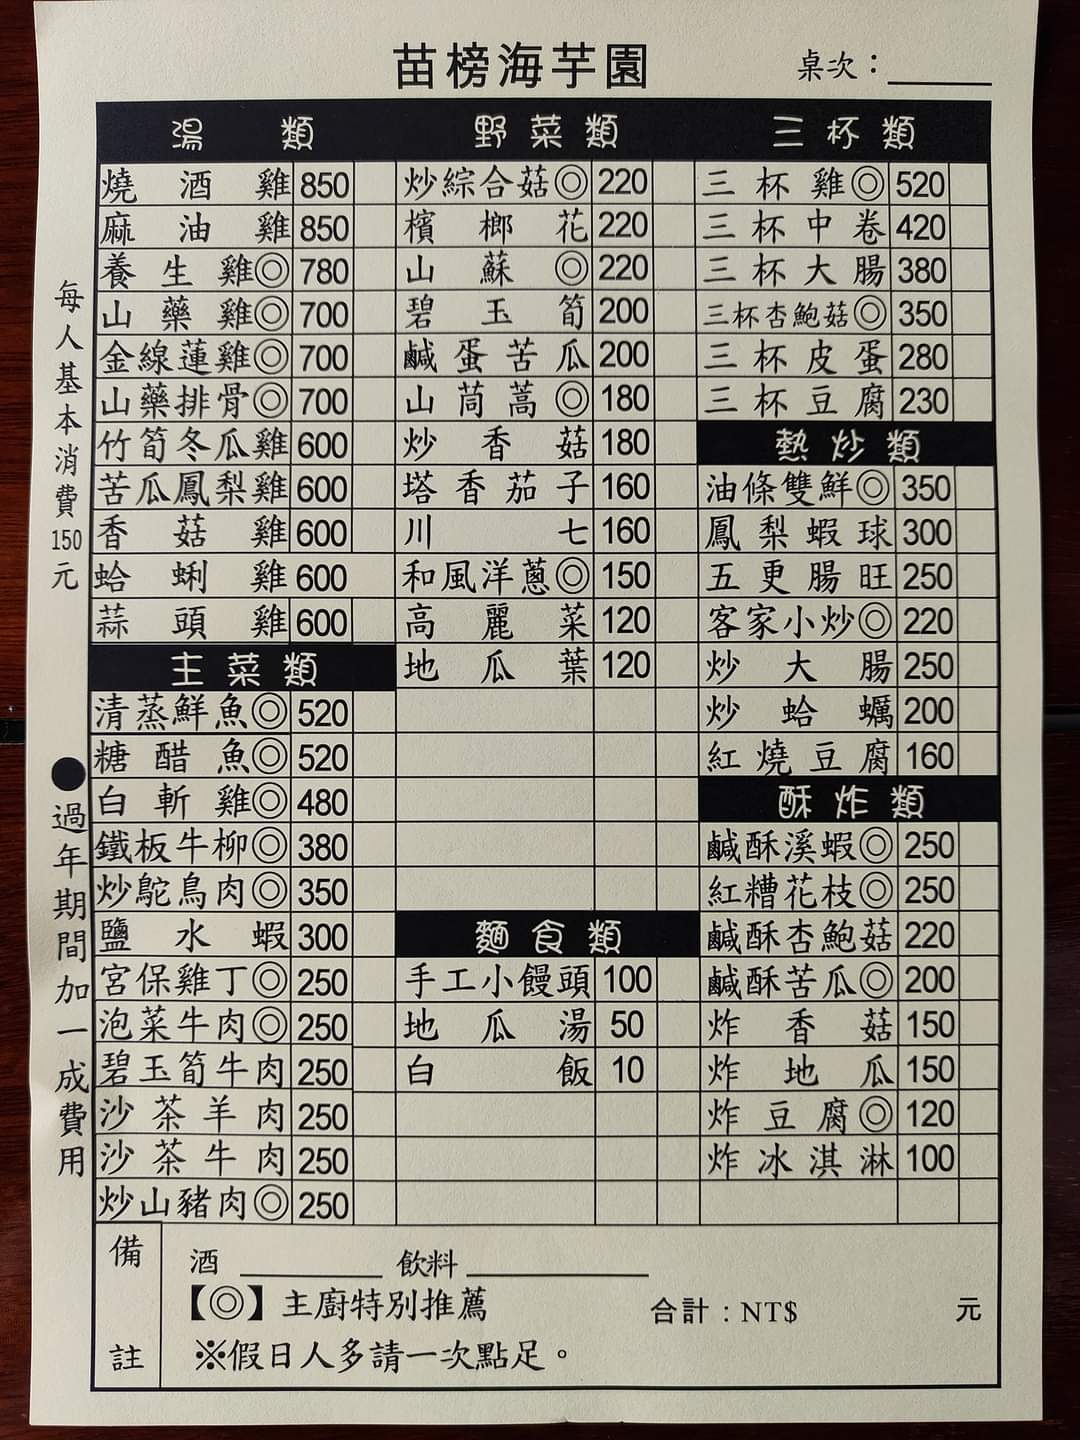 苗榜海芋園
桌次：
湯類
燒酒雞 850
麻油雞 850
養生雞◎ 780
山藥雞◎ 700
金線蓮雞◎ 700
山藥排骨◎ 700
竹筍冬瓜雞 600
苦瓜鳳梨雞 600
香菇雞 600
蛤蜊雞 600
蒜頭雞 600
主菜類
清蒸鮮魚◎ 520
糖醋魚◎ 520
白斬雞◎ 480
鐵板牛柳◎ 380
炒鴕鳥肉◎ 350
鹽水蝦 300
宮保雞丁◎ 250
泡菜牛肉◎ 250
碧玉筍牛肉 250
沙茶羊肉 250
沙茶牛肉 250
炒山豬肉◎ 250
野菜類
炒綜合菇◎ 220
檳榔花 220
山蘇◎ 220
碧玉筍 200
鹹蛋苦瓜 200
山茼蒿◎ 180
炒香菇 180
塔香茄子 160
川七 160
和風洋蔥◎ 150
高麗菜 120
地瓜葉 120
麵食類
手工小饅頭 100
地瓜湯 50
白飯 10
三杯類
三杯雞◎ 520
三杯中卷 420
三杯大腸 380
三杯杏鮑菇◎ 350
三杯皮蛋 280
三杯豆腐 230
熱炒類
油條雙鮮◎ 350
鳳梨蝦球 300
五更腸旺 250
客家小炒◎ 220
炒大腸 250
炒蛤蠣 200
紅燒豆腐 160
酥炸類
鹹酥溪蝦◎ 250
紅糟花枝◎ 250
鹹酥杏鮑菇 220
鹹酥苦瓜◎ 200
炸香菇 150
炸地瓜 150
炸豆腐◎ 120
炸冰淇淋 100
每人基本消費150元
●過年期間加一成費用
備註
酒 飲料
【◎】主廚特別推薦
合計：NT$ 元
※假日人多請一次點足。